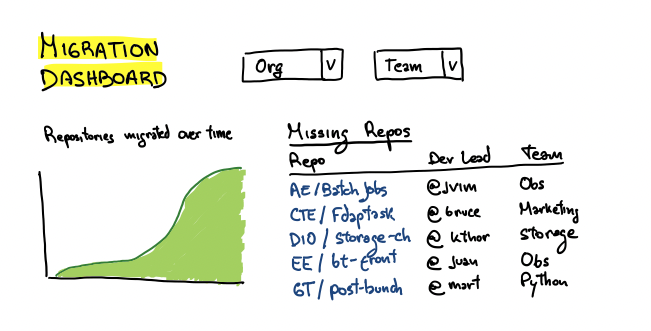 MIGRATION
DASHBOARD
Org V
Team V
Repositories migrated over time
Missing Repos
Repo Dev Lead Team
AE/Batch Jobs @jvim Obs
CTE/Fdaptask @bruce Marketing
DIO/Storage-ch @kthor Storage
EE/bt-front @juan Obs
GT/post-bunch @mart Python